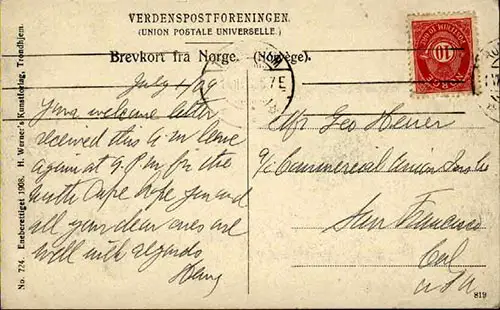 VERDENSPOSTFORENINGEN.
(UNION POSTALE UNIVERSELLE.)
Brevkort fra Norge. (Norvège).
July 1/09
Your welcome letter
received this a m leave
again at 9. P m for the
North Cape hope you and
all your dear ones are
well with regards
Mr Geo Heuer
c/o Commercial Union
San Francisco
Cal
USA
No. 724. Eneberettiget 1908. H. Werner's Kunstforlag, Trondhjem.
10
NORGE
819